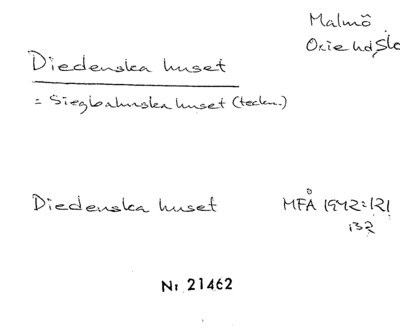 Malmö
Oxie hd, Sk
Diedenska huset
= Siegbahnska huset (teckn.)
Diedenska huset MFÅ 1942:121
132
Nr 21462